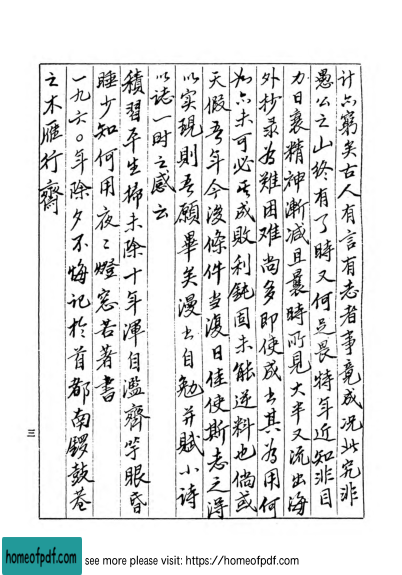 计亦穷矣古人有言有志者事竟成况此究非
愚公之山终有了時又何足畏特年近知非目
力日衰精神漸减且曩時所見大半又流出海
外抄录為難困难尚多即使成书其為用何
如亦未可必至成敗利鈍固未能逆料也倘或
天假吾年今後條件当復日佳使斯志之得
以实現則吾願畢矣漫书自勉并賦小詩
以誌一时之感云
積習平生掃未除十年渾自濫齊竽眼昏
睡少知何用夜〻燈窓若著書
一九六〇年除夕不悔記於首都南鑼鼓巷
之木雁行齋
三
homeofpdf.com
see more please visit: https://homeofpdf.com